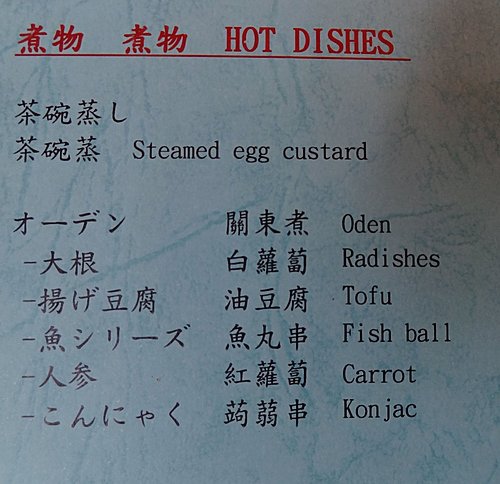 煮物　煮物　HOT DISHES
茶碗蒸し
茶碗蒸　Steamed egg custard
オーデン　關東煮　Oden
-大根　白蘿蔔　Radishes
-揚げ豆腐　油豆腐　Tofu
-魚シリーズ　魚丸串　Fish ball
-人参　紅蘿蔔　Carrot
-こんにゃく　蒟蒻串　Konjac